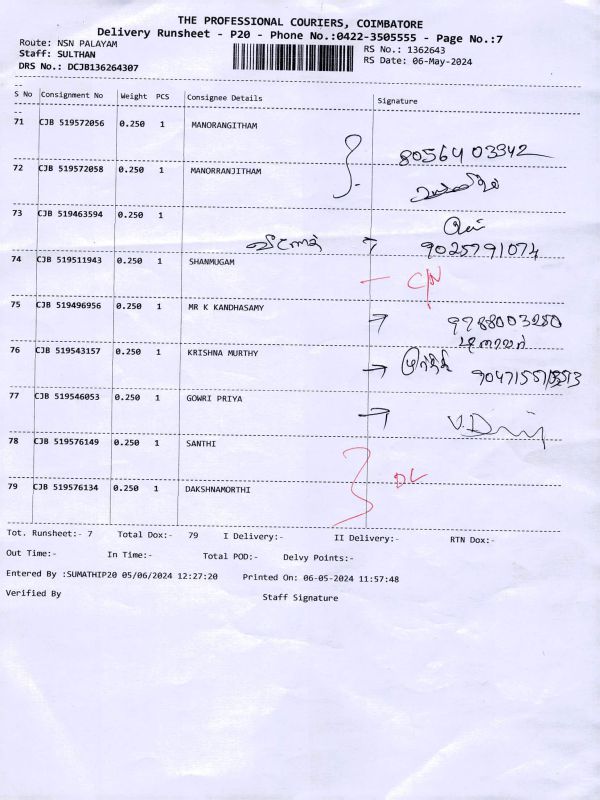 THE PROFESSIONAL COURIERS, COIMBATORE
Delivery Runsheet - P20 - Phone No.:0422-3505555 - Page No.:7
Route: NSN PALAYAM
RS No.: 1362643
Staff: SULTHAN
RS Date: 06-May-2024
DRS No.: DCJB136264307
S No Consignment No Weight PCS Consignee Details Signature
71 CJB 519572056 0.250 1 MANORANGITHAM
8056403342
72 CJB 519572058 0.250 1 MANORRANJITHAM
73 CJB 519463594 0.250 1
9025791074
74 CJB 519511943 0.250 1 SHANMUGAM
C/N
75 CJB 519496956 0.250 1 MR K KANDHASAMY
9788003250
76 CJB 519543157 0.250 1 KRISHNA MURTHY
மூர்த்தி
77 CJB 519546053 0.250 1 GOWRI PRIYA
78 CJB 519576149 0.250 1 SANTHI
DL
79 CJB 519576134 0.250 1 DAKSHNAMORTHI
Tot. Runsheet:- 7 Total Dox:- 79 I Delivery:- II Delivery:- RTN Dox:-
Out Time:- In Time:- Total POD:- Delvy Points:-
Entered By :SUMATHIP20 05/06/2024 12:27:20 Printed On: 06-05-2024 11:57:48
Verified By Staff Signature